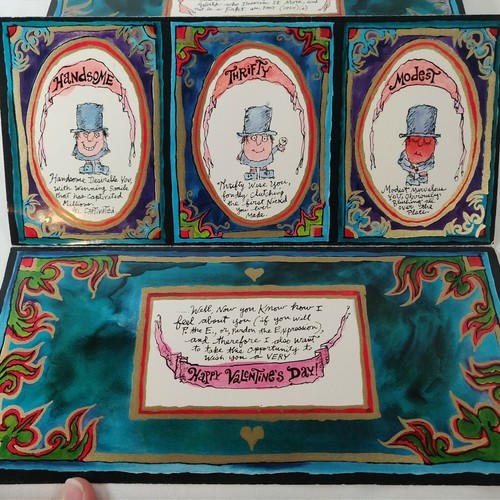 HANDSOME
Handsome Desirable You,
With Winning Smile
that has Captivated
Millions.
CAPTIVATED
THRIFTY
Thrifty Wise You,
fondly Clutching
the first Nickel
You Ever
Made.
MODEST
Modest Marvelous
You, Obviously
Blushing all
over the
Place.
Well, Now you Know how I
feel about you (if you will
P. the E., or, Pardon the Expression),
and therefore I also want
to take this Opportunity to
Wish you a VERY
HAPPY VALENTINE'S DAY!